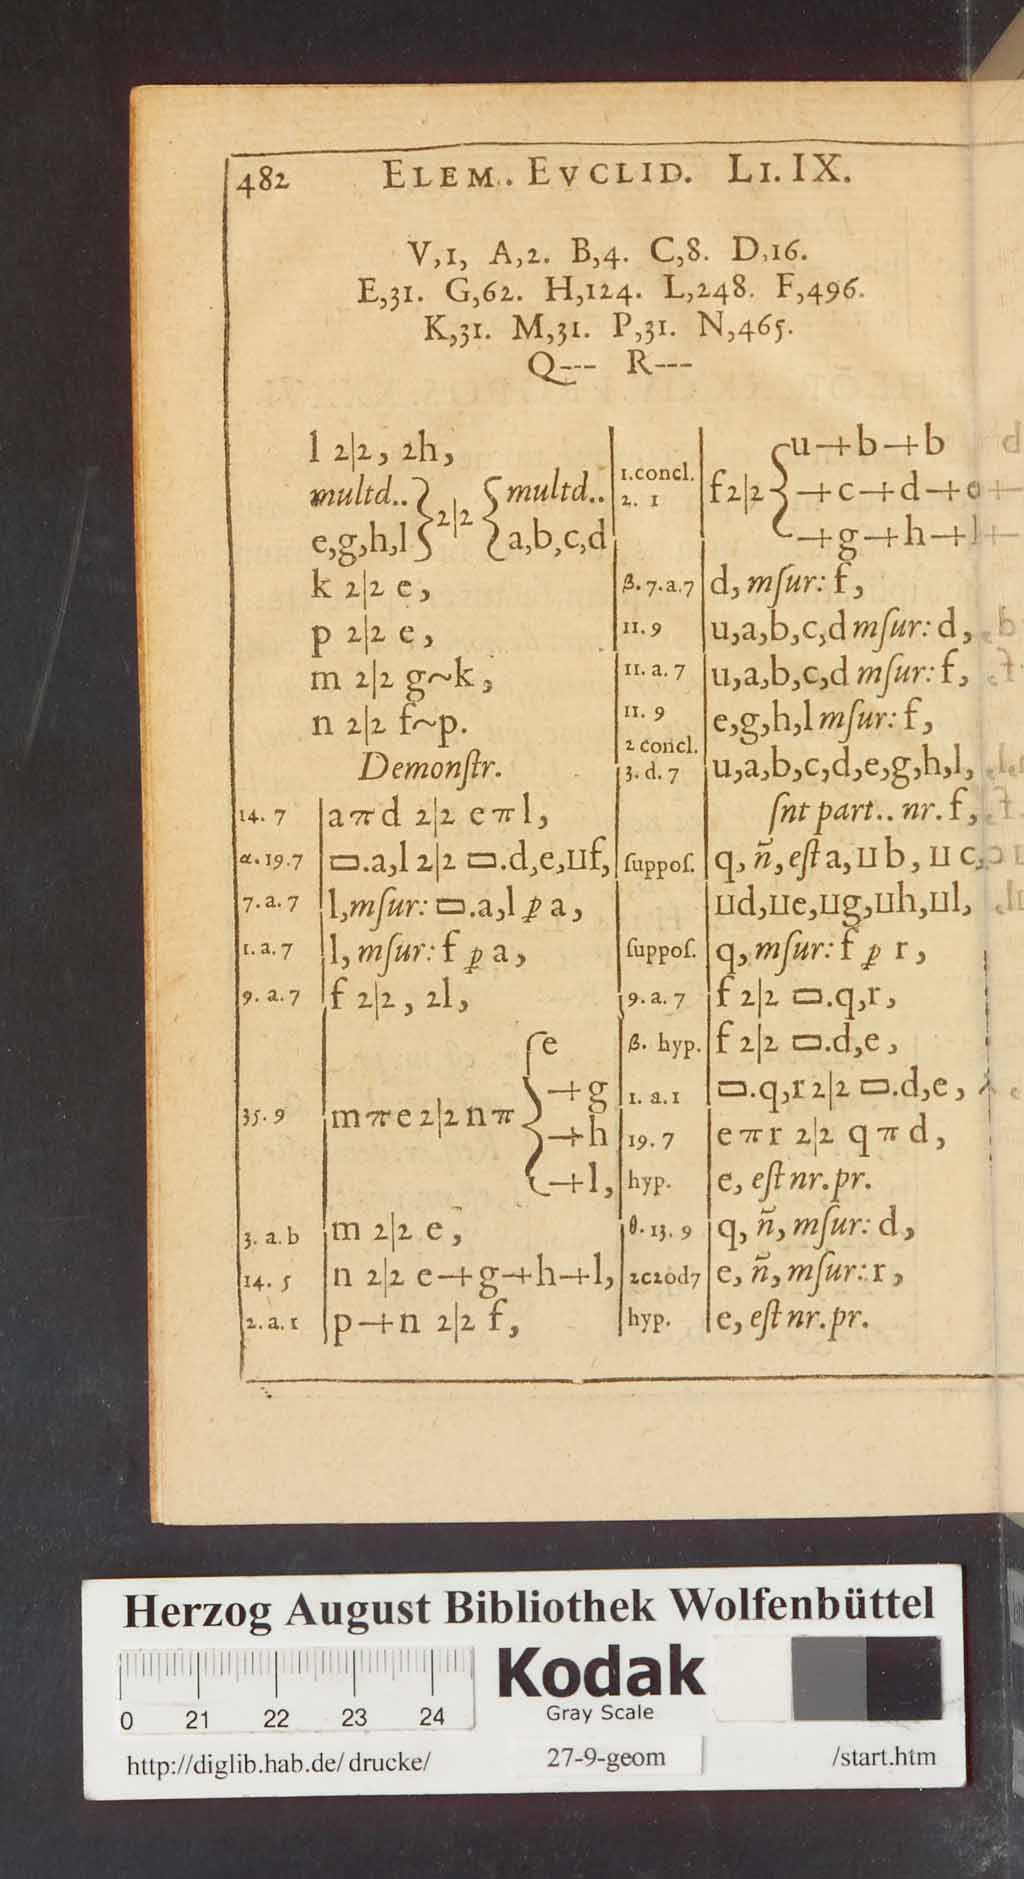 482 ELEM. EVCLID. LI. IX.
V,1, A,2. B,4. C,8. D,16.
E,31. G,62. H,124. L,248. F,496.
K,31. M,31. P,31. N,465.
Q--- R---
l 2|2, 2h,
multd..} 2|2 {multd..
e,g,h,l} {a,b,c,d
k 2|2 e,
p 2|2 e,
m 2|2 g~k,
n 2|2 f~p.
Demonſtr.
14. 7 | aπd 2|2 eπl,
α. 19.7 | ▭.a,l 2|2 ▭.d,e,⊔f,
7. a. 7 | l,mſur: ▭.a,l ꝑ a,
1. a. 7 | l, mſur: f ꝑ a,
9. a. 7 | f 2|2, 2l,
35. 9 | mπe 2|2 nπ {e
+g
+h
+l,
3. a. b | m 2|2 e,
14. 5 | n 2|2 e+g+h+l,
2. a. 1 | p+n 2|2 f,
1.concl.
2. 1 | f 2|2 {u+b+b
+c+d+e
+g+h+l
β. 7. a. 7 | d, mſur: f,
11. 9 | u,a,b,c,d mſur: d,
11. a. 7 | u,a,b,c,d mſur: f,
11. 9 | e,g,h,l mſur: f,
2 concl.
3. d. 7 | u,a,b,c,d,e,g,h,l,
ſnt part.. nr. f,
ſuppoſ. | q, ñ, eſt a, ⊔b, ⊔c,
⊔d,⊔e,⊔g,⊔h,⊔l,
ſuppoſ. | q, mſur: f ꝑ r,
9. a. 7 | f 2|2 ▭.q,r,
β. hyp. | f 2|2 ▭.d,e,
1. a. 1 | ▭.q,r 2|2 ▭.d,e,
19. 7 | eπr 2|2 qπd,
hyp. | e, eſt nr. pr.
θ. 13. 9 | q, ñ, mſur: d,
2c20d7 | e, ñ, mſur: r,
hyp. | e, eſt nr. pr.
Herzog August Bibliothek Wolfenbüttel
0 21 22 23 24
Kodak
Gray Scale
http://diglib.hab.de/drucke/ 27-9-geom /start.htm